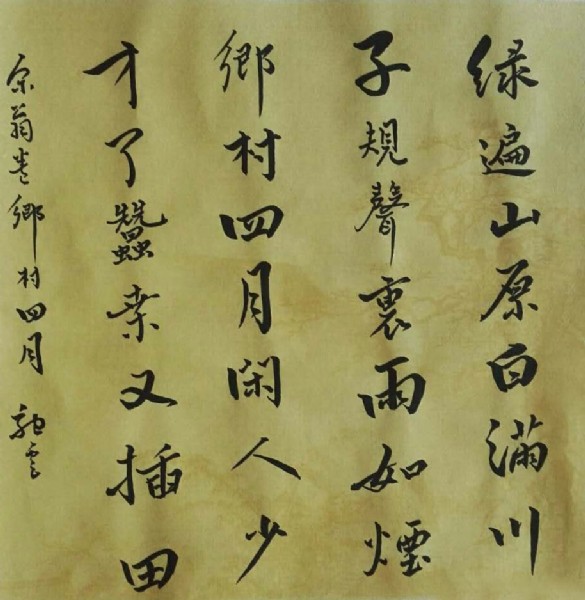 绿遍山原白滿川
子規聲裏雨如煙
鄉村四月闲人少
才了蠶桒又插田
宗翁卷鄉村四月